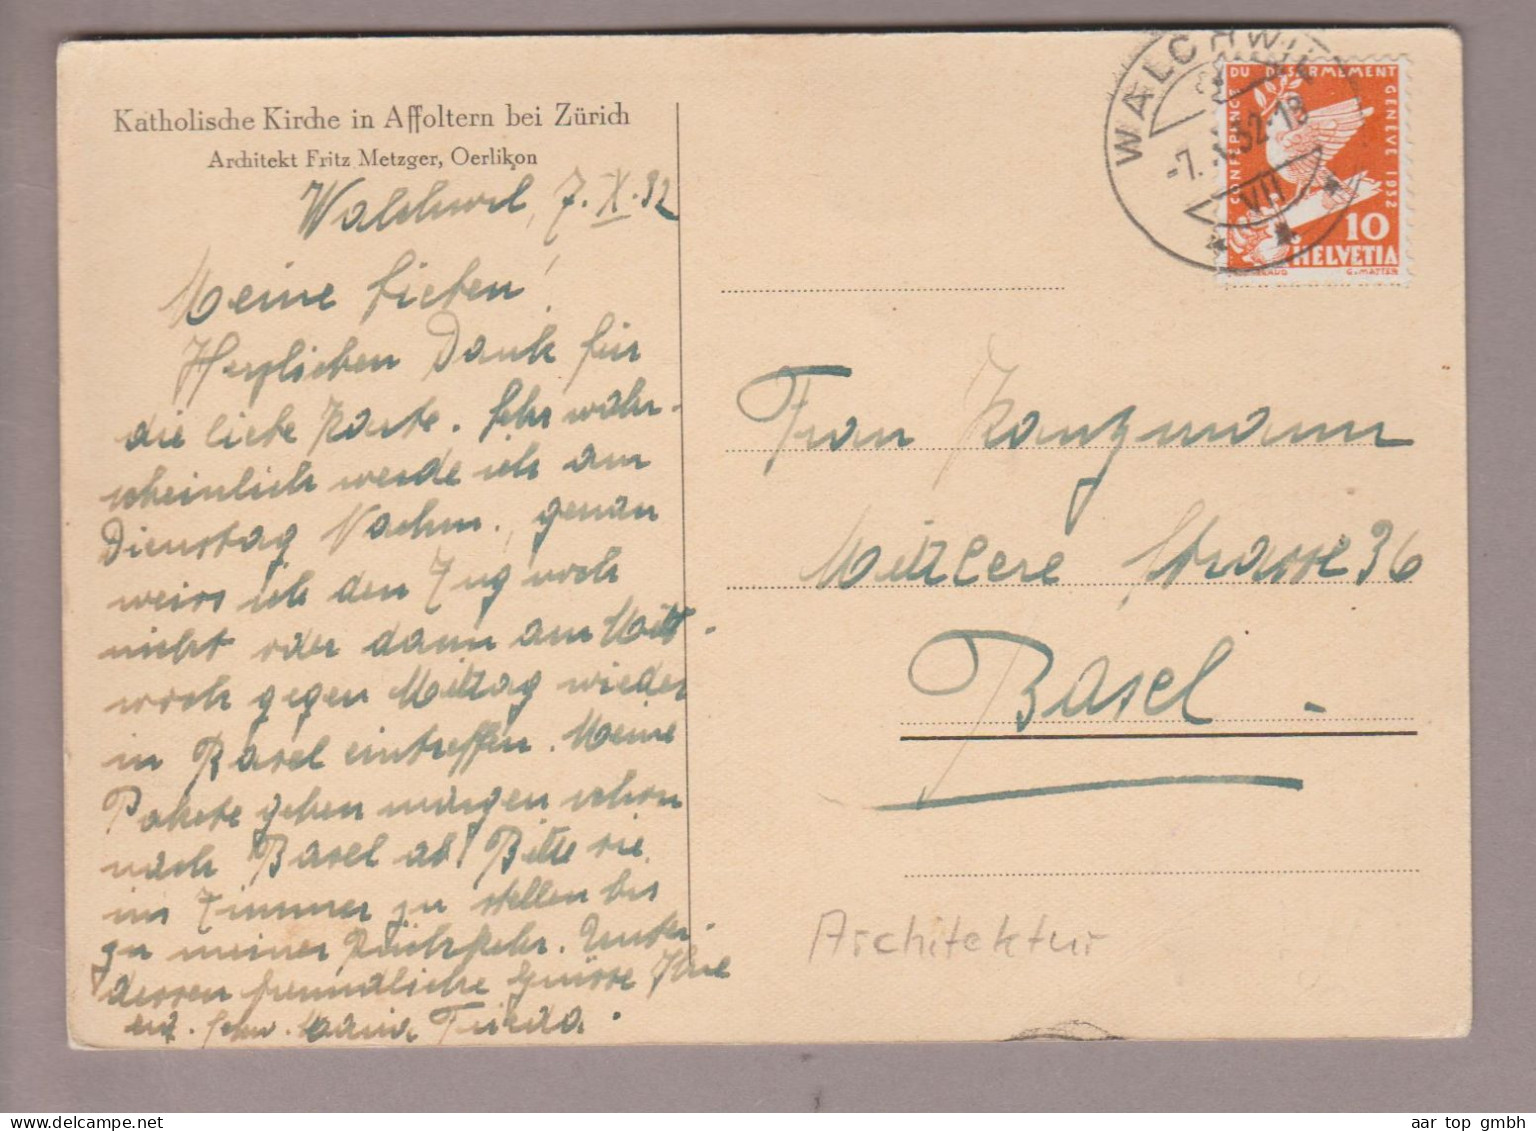 Katholische Kirche in Affoltern bei Zürich
Architekt Fritz Metzger, Oerlikon
Walchwil, 7. X. 32
Meine Lieben!
Herzlichen Dank für
die liebe Karte. Sehr wahr-
scheinlich werde ich am
Dienstag Nachm., genau
weiss ich den Zug noch
nicht oder dann am Mitt-
woch gegen Mittag wieder
in Basel eintreffen. Meine
Pakete gehen morgen schon
nach Basel ab! Bitte sie
ins Zimmer zu stellen bis
zu meiner Rückkehr. Unter-
dessen freundliche Grüsse Ihre
Schw. Maria Frieda.
WALCHWIL
-7. X. 32-18
VII
CONFERENCE DU DESARMEMENT GENEVE 1932
10
HELVETIA
G. MATTER
Frau Kanzmann
Mittlere Strasse 36
Basel.
Architektur
aar top gmbh